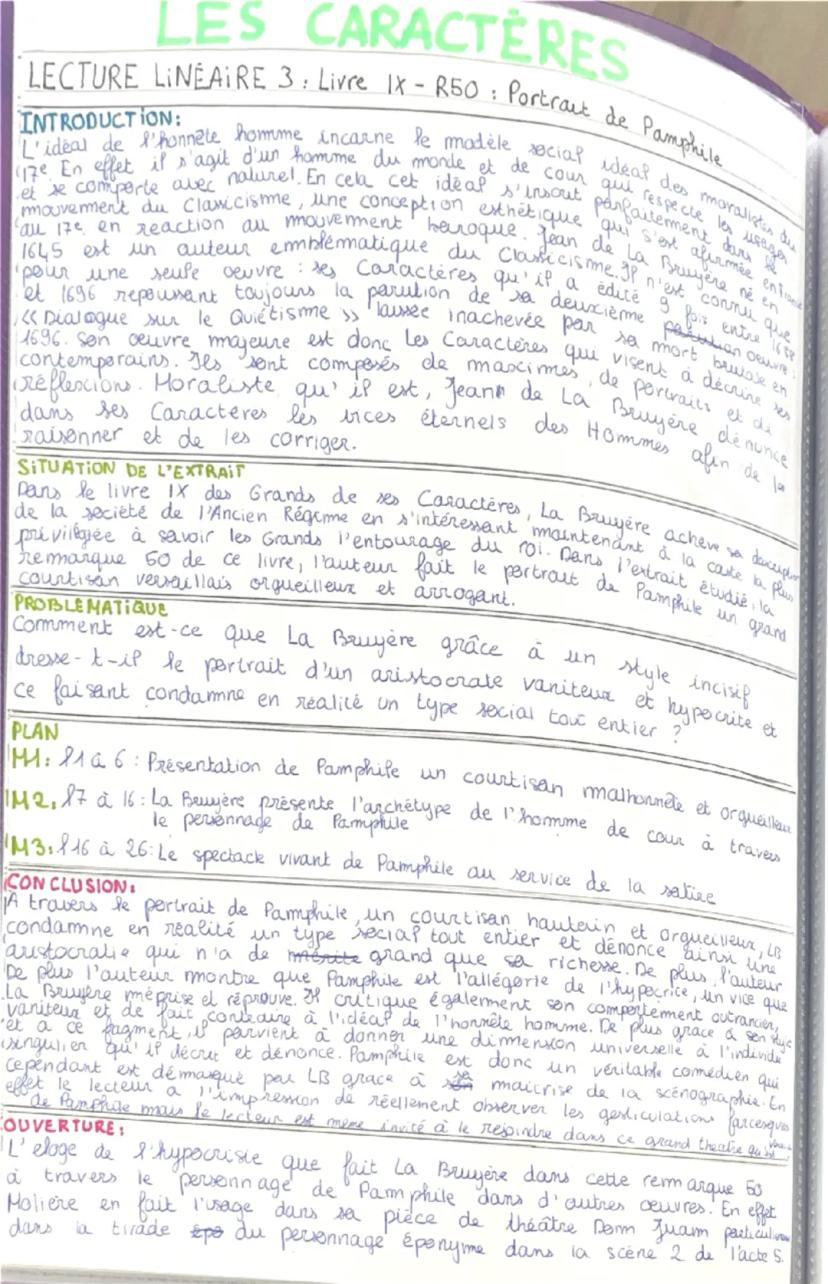 LES CARACTÈRES
LECTURE LINÉAIRE 3 : Livre IX - R50 : Portrait de Pamphile
INTRODUCTION :
L'idéal de l'honnête homme incarne le modèle social idéal des moralistes du
17e. En effet il s'agit d'un homme du monde et de cour qui respecte les usages
et se comporte avec naturel. En cela cet idéal s'inscrit parfaitement dans le
mouvement du Classicisme, une conception esthétique qui s'est afirmée en France
au 17e en reaction au mouvement baroque. Jean de La Bruyère né en
1645 est un auteur emblématique du Classicisme. Il n'est connu que
pour une seule oeuvre : ses Caractères qu'il a édité 9 fois entre 1688
et 1696 repoussant toujours la parution de sa deuxième oeuvre :
<< Dialogue sur le Quiétisme >> laissée inachevée par sa mort brutale en
1696. Son oeuvre majeure est donc les Caractères qui visent à décrire ses
contemporains. Ils sont composés de maximes, de portraits et de
réflexions. Moraliste qu'il est, Jean de La Bruyère dénonce
dans ses Caractères les vices éternels des Hommes afin de les
raisonner et de les corriger.
SITUATION DE L'EXTRAIT
Dans le livre IX des Grands de ses Caractères, La Bruyère achève sa description
de la société de l'Ancien Régime en s'intéressant maintenant à la caste la plus
privilégiée à savoir les Grands l'entourage du roi. Dans l'extrait étudié, la
remarque 50 de ce livre, l'auteur fait le portrait de Pamphile un grand
courtisan versaillais orgueilleux et arrogant.
PROBLÉMATIQUE
Comment est-ce que La Bruyère grâce à un style incisif
dresse-t-il le portrait d'un aristocrate vaniteux et hypocrite et
ce faisant condamne en réalité un type social tout entier ?
PLAN
M1 : l1 à 6 : Présentation de Pamphile un courtisan malhonnête et orgueilleux
M2 : l7 à 16 : La Bruyère présente l'archétype de l'homme de cour à travers
le personnage de Pamphile
M3 : l16 à 26 : Le spectacle vivant de Pamphile au service de la satire
CONCLUSION :
A travers le portrait de Pamphile, un courtisan hautain et orgueilleux, LB
condamne en réalité un type social tout entier et dénonce ainsi une
aristocratie qui n'a de mérite grand que sa richesse. De plus, l'auteur
De plus l'auteur montre que Pamphile est l'allégorie de l'hypocrice, un vice que
La Bruyère méprise et réprouve. Il critique également son comportement outrancier,
vaniteux et de fait contraire à l'idéal de l'honnête homme. De plus grace à son style
et a ce fragment, il parvient à donner une dimension universelle à l'individu
singulier qu'il décrit et dénonce. Pamphile est donc un véritable comédien qui
cependant est démasqué par LB grace à sa maitrise de la scénographie. En
effet le lecteur a l'impression de réellement observer les gesticulations farcesques
de Pamphile mais le lecteur est même invité à le rejoindre dans ce grand theatre
OUVERTURE :
L'eloge de l'hypocrisie que fait La Bruyère dans cette remarque 50
à travers le personnage de Pamphile dans d'autres oeuvres. En effet
Molière en fait l'usage dans sa pièce de théâtre Dom Juan particulièrement
dans la tirade du personnage éponyme dans la scène 2 de l'acte 5.